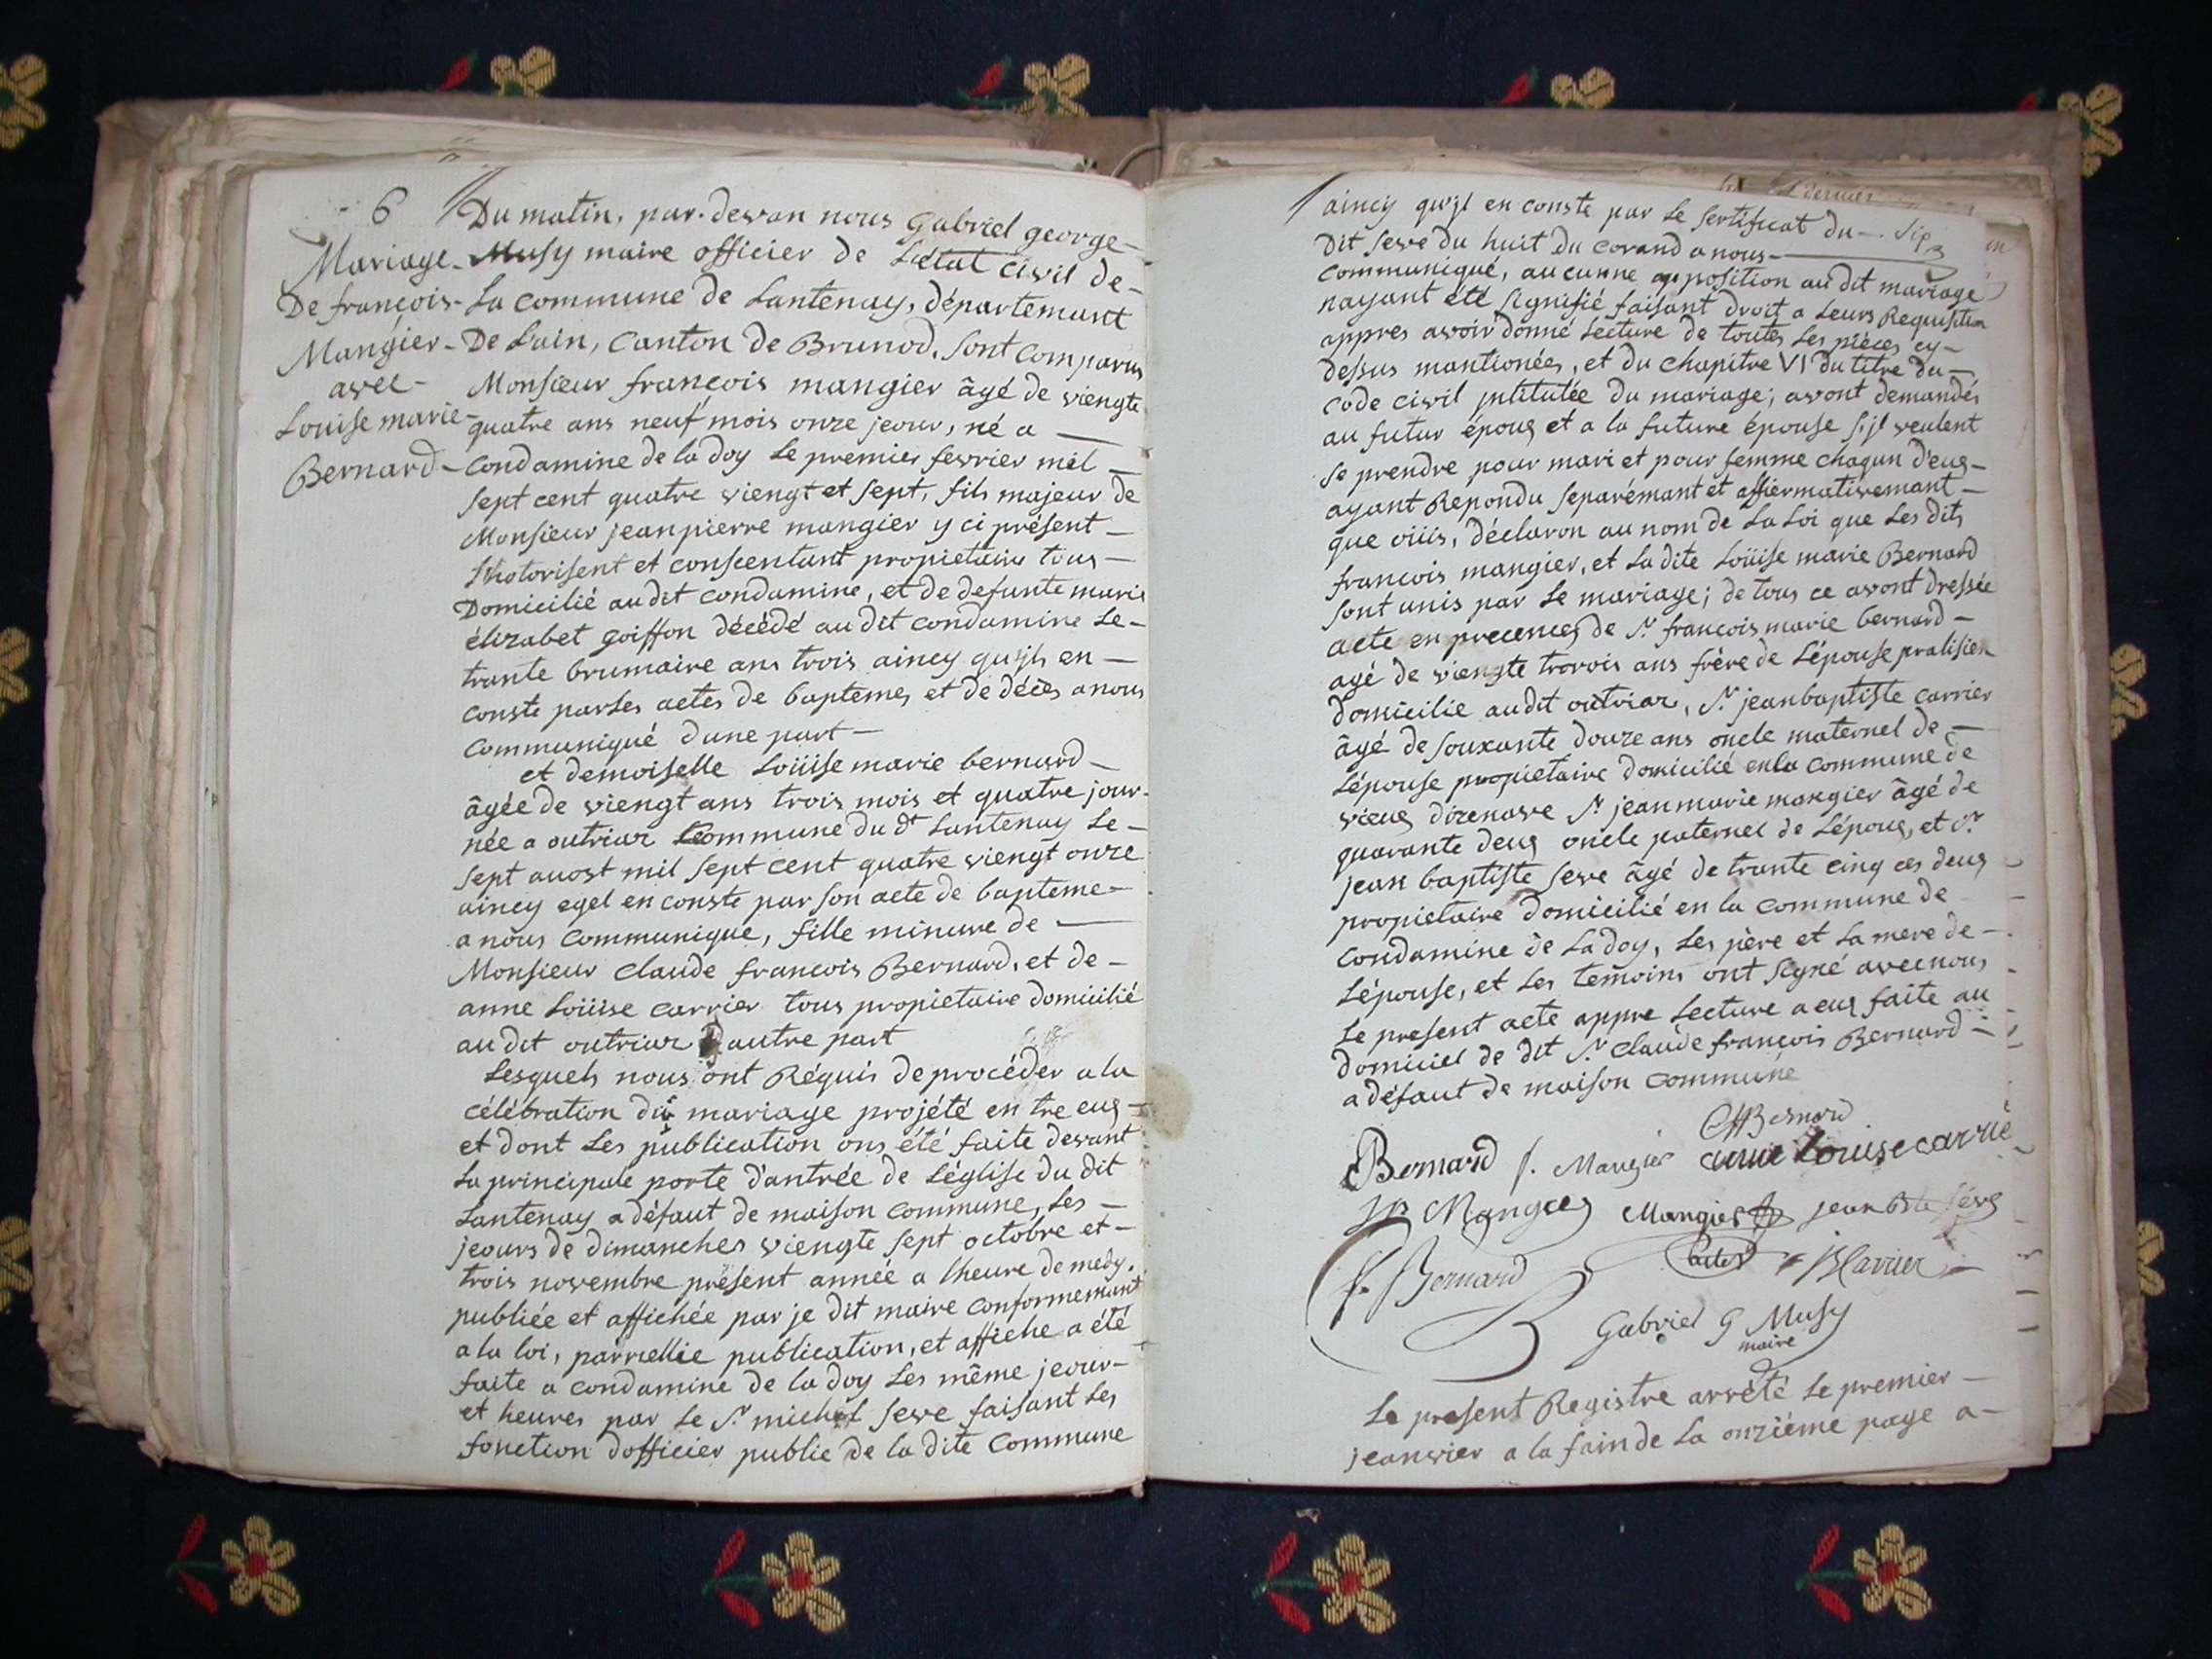 6
Mariage
De françois
Mangier
avec
Louise marie
Bernard
Du matin, par devan nous Gabriel george
Musy maire officier de L'état civil de
La commune de Lantenay, départemant
De L'ain, Canton de Brunod, sont comparus
Monsieur françois mangier âgé de viengte
quatre ans neuf mois onze jeour, né a
condamine de la doy Le premier fevrier mil
sept cent quatre viengt et sept, fils majeur de
Monsieur jean pierre mangier y ci présent
et consentant propietaire tous
Domicilié au dit condamine, et de defunte marie
élizabet goiffon décédé au dit condamine Le
trante brumaire ans trois aincy qu'jls en
conste par Les actes de baptemes et de décès a nous
communiqué d'une part
et demoiselle Loüise marie bernard
âgée de viengt ans trois mois et quatre jour
née a outriaz Commune du dt Lantenay Le
sept auost mil sept cent quatre viengt onze
aincy egel en conste par son acte de bapteme
a nous communiqué, fille mineure de
Monsieur claude francois Bernard, et de
anne Loüise carrier tous propietaire domicilié
au dit outriaz D'autre part
Lesquels nous ont Réquis de procéder a la
célébration du mariage projété entre eus
et dont Les publication ons été faite devant
La principale porte d'antrée de L'église du dit
Lantenay a défaut de maison commune, Les
jeours de dimanches viengte sept octobre et
trois novembre présent année a lheure de medy.
publiée et affichée par je dit maire conformemant
a la loi, parriellie publication, et affiche a été
faite a condamine de la doy Les même jeour
et heures par Le Sr michel seve faisant Les
fonction d'officier public de la dite commune
aincy qu'jl en conste par Le sertificat du
Dit seve du huit du corand a nous
communiqué, aucunne opposition au dit mariage
nayant été signifié faisant droit a Leurs Requisition
appres avoir donné Lecture de toutes Les pièces cy
dessus mantionées, et du chapitre VI du titre du
code civil jntitutée Du mariage; avont demandés
au futur époug et a la future épouse s'jl veulent
se prendre pour mari et pour femme chaqun d'eus
ayant Repondu separémant et affiermativemant
que oüis, déclaron au nom de La Loi que Les dits
francois mangier, et La dite Loüise marie Bernard
sont unis par Le mariage; de tous ce avont dressée
acte en precences de Sr francois marie bernard
agé de viengte trovois ans frère de L'épouse pratisien
domicilie au dit outriaz, Sr jean baptiste carrier
âgé de souxante douze ans oncle maternel de
L'épouse propietaire domicilié en la commune de
vieus d'izenave Sr jean marie mangier âgé de
quarante deus oncle paternel de L'époug, et Sr
jean baptiste seve âgé de trante cinq ces deus
propietaire domicilié en la commune de
condamine de La doy, Les père et La mere de
L'épouse, et Les temoins ont signé avec nous
Le present acte appre Lecture a eus faite au
domiciel de dit Sr claude françois Bernard
a défaut de maison commune
Bernard
Bernard f. Mangier anne Louise carrié
Mangier Mangier jean Bte séve
f. Bernard JB Carrier
Gabriel G Musy
maire
Le present Registre arrêté Le premier
jeanvier a la fain de La onzième page a